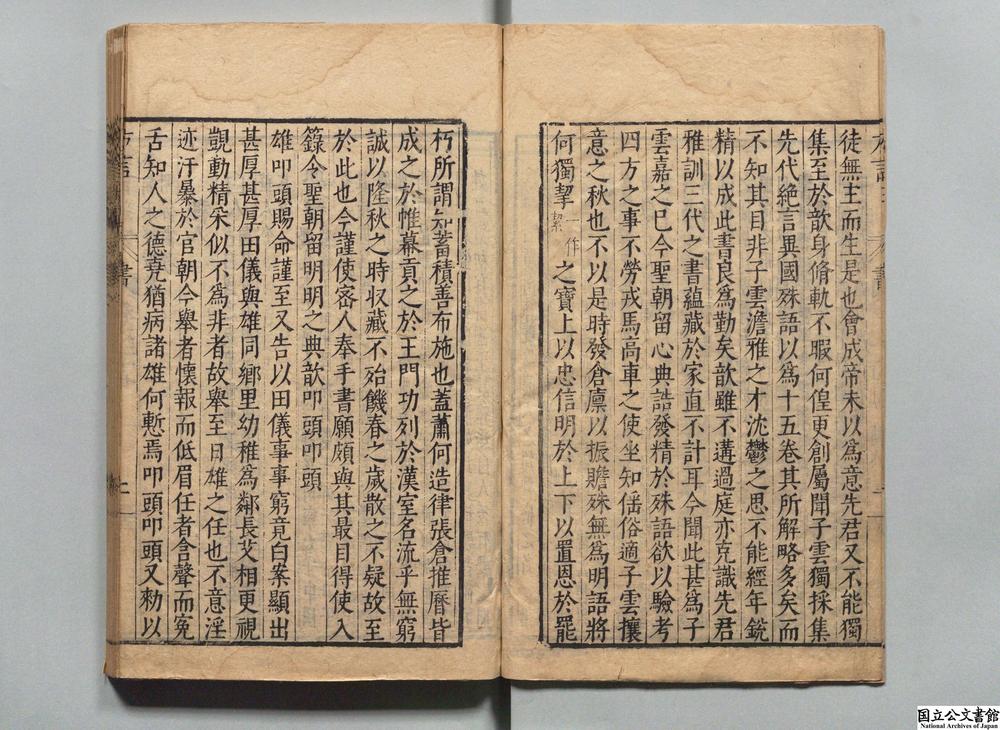 徒無主而生是也會成帝未以爲意先君又不能獨
集至於歆身脩軌不暇何偟更創屬聞子雲獨採集
先代絶言異國殊語以爲十五卷其所解略多矣而
不知其目非子雲澹雅之才沈鬱之思不能經年銳
精以成此書良爲勤矣歆雖不遘過庭亦克識先君
雅訓三代之書蘊藏於家直不計耳今聞此甚爲子
雲嘉之已今聖朝留心典誥發精於殊語欲以驗考
四方之事不勞戎馬高車之使坐知傜俗適子雲攘
意之秋也不以是時發倉廩以振贍殊無爲明語將
何獨挈一作絜之寶上以忠信明於上下以置恩於罷
朽所謂知蓄積善布施也蓋蕭何造律張倉推曆皆
成之於帷幕貢之於王門功列於漢室名流乎無窮
誠以隆秋之時收藏不殆饑春之歲散之不疑故至
於此也今謹使密人奉手書願頗與其最目得使入
籙令聖朝留明明之典歆叩頭叩頭
雄叩頭賜命謹至又告以田儀事事窮竟白案顯出
甚厚甚厚田儀與雄同鄉里幼稚爲鄰長艾相更視
覬動精采似不爲非者故舉至日雄之任也不意淫
迹汙暴於官朝今舉者懷報而低眉任者含聲而冤
舌知人之德堯猶病諸雄何慙焉叩頭叩頭又勑以
書
國立公文書館
National Archives of Japan